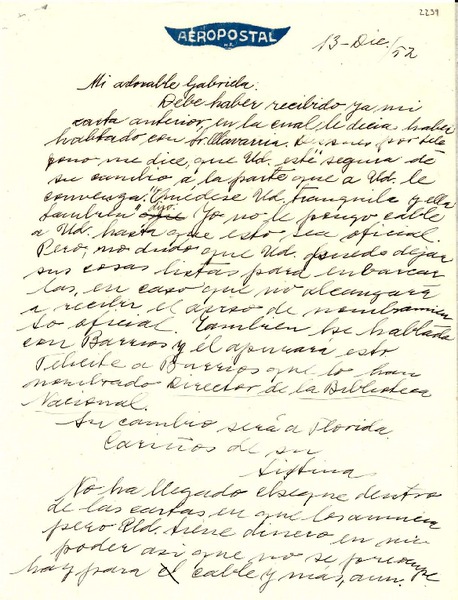 2239
AEROPOSTAL
13-Dic./52
Mi adorable Gabriela:
Debe haber recibido ya, mi
carta anterior, en la cual le decía haber
hablado con Sr. Olavarría. Después, por telé
fono me dice, que Ud. esté segura de
su cambio á la parte que a Ud. le
convenga. "Quédese Ud. tranquila y ella
también" dijo. Yo no le pongo cable
a Ud. hasta que esto sea oficial.
Pero, no dudo que Ud. puede dejar
sus cosas listas para embarcar
las, en caso que no alcanzara
a recibir el aviso de nombramien
to oficial. También he hablado
con Barrios y él apurará esto
Felicite a Barrios que lo han
nombrado Director de la Biblioteca
Nacional.
Su cambio será a Florida
Cariños de su
Sixtina
No ha llegado cheque dentro
de las cartas en que los anuncia
pero Ud. tiene dinero en mi
poder así que no se preocupe
hay para el cable y más, aun.